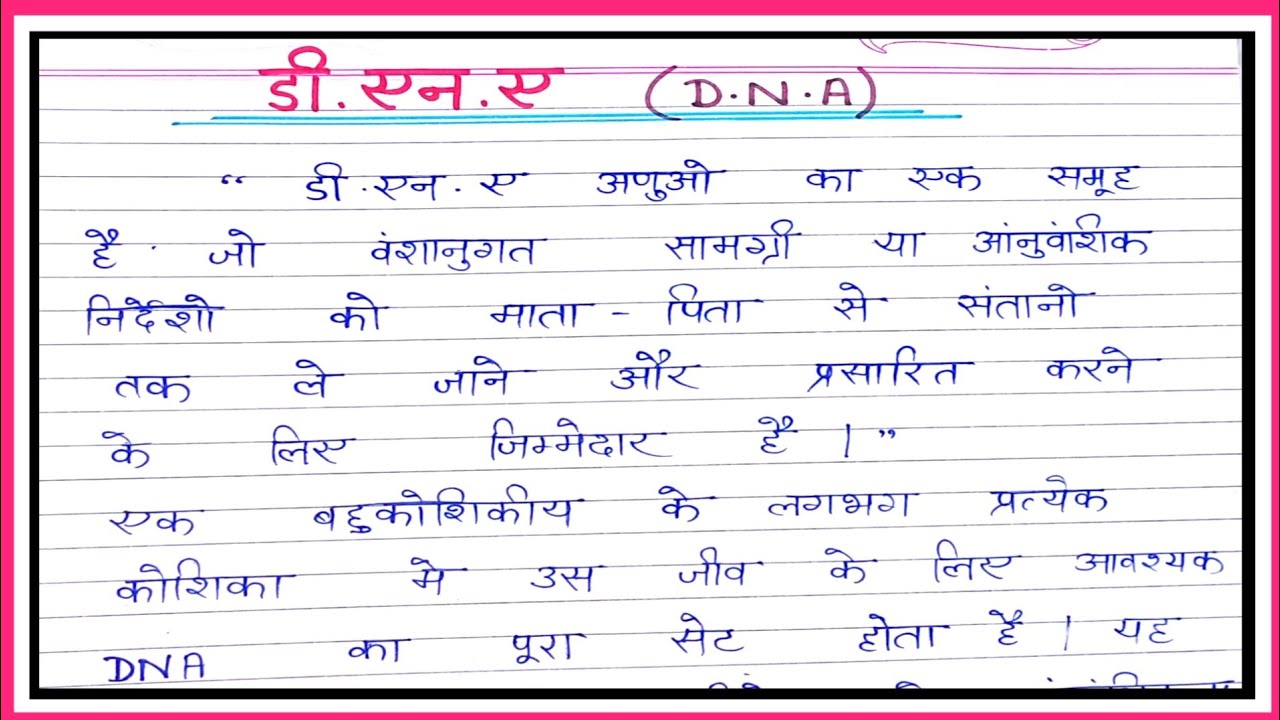 डी.एन.ए (D.N.A)
“ डी.एन.ए अणुओ का एक समूह
है जो वंशानुगत सामग्री या आंनुवांशिक
निर्देशो को माता - पिता से संतानो
तक ले जाने और प्रसारित करने
के लिए जिम्मेदार है । ”
एक बहुकोशिकीय के लगभग प्रत्येक
कोशिका मे उस जीव के लिए आवश्यक
DNA का पूरा सेट होता है । यह